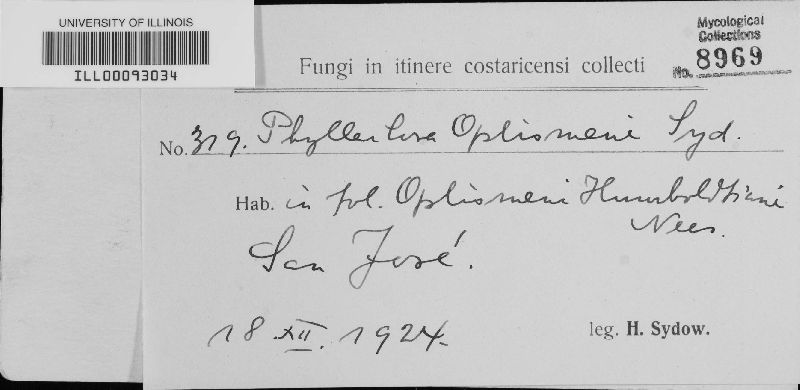 UNIVERSITY OF ILLINOIS
ILL00093034
Mycological
Collections
No. 8969
Fungi in itinere costaricensi collecti
No. 319. Phyllachora Oplismeni Syd.
Hab. in fol. Oplismeni Humboldtiani
Nees.
San José.
18 XII. 1924.
leg. H. Sydow.